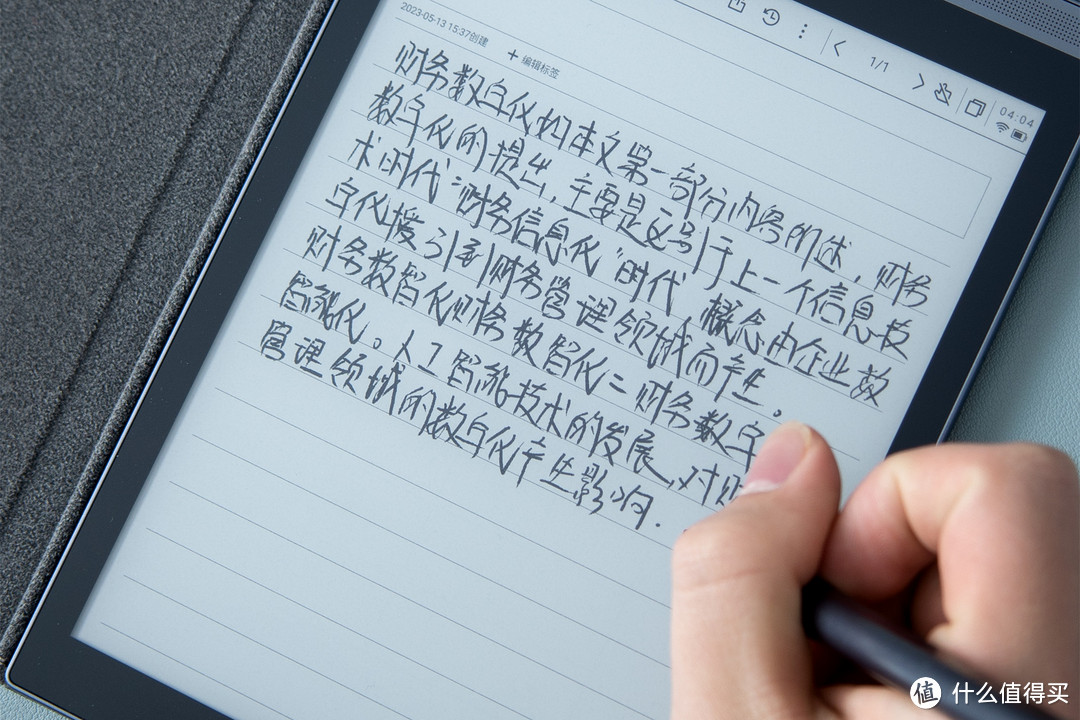 2023-05-13 15:37创建
+ 编辑标签
1/1
04:04
财务数字化如本文第一部分内容所述,财务
数字化的提出,主要是区别于上一个信息技
术时代“财务信息化”时代,概念由企业数
字化援引到财务管理领域而产生。
财务数智化财务数智化=财务数字
智能化。人工智能技术的发展,对财
管理领域的数字化产生影响.
值 什么值得买